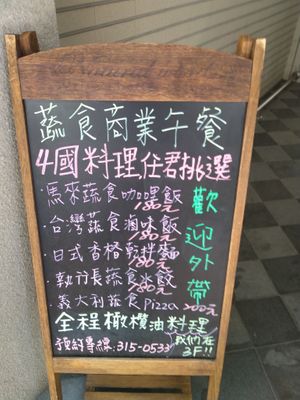 蔬食商業午餐
4國料理任君挑選
·馬來蔬食咖哩飯 180元
·台灣蔬食滷味飯 180元
·日式香椿乾拌麵 180元
蔬食炊飯 180元
·義大利蔬食pizza 200元
歡迎外帶
全程橄欖油料理
預約專線:315-0533
我們在3F!!